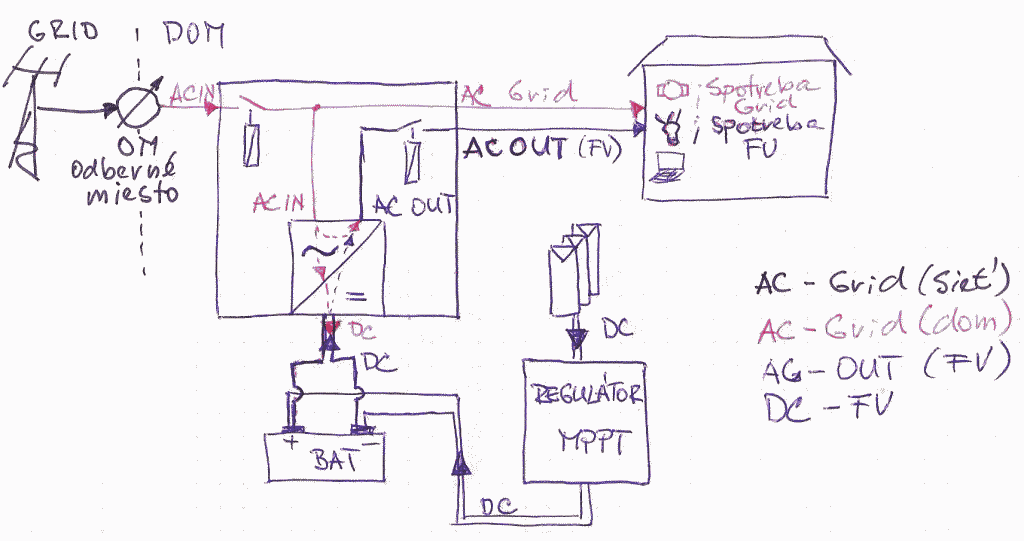 GRID
DOM
AC IN
OM
odberné
miesto
AC Grid
AC OUT (FV)
; Spotreba
Grid
; Spotreba
FV
AC IN
AC OUT
~
=
DC
DC
DC
+
-
BAT
REGULÁTOR
MPPT
DC
AC - Grid (Sieť)
AC - Grid (dom)
AC - OUT (FV)
DC - FV